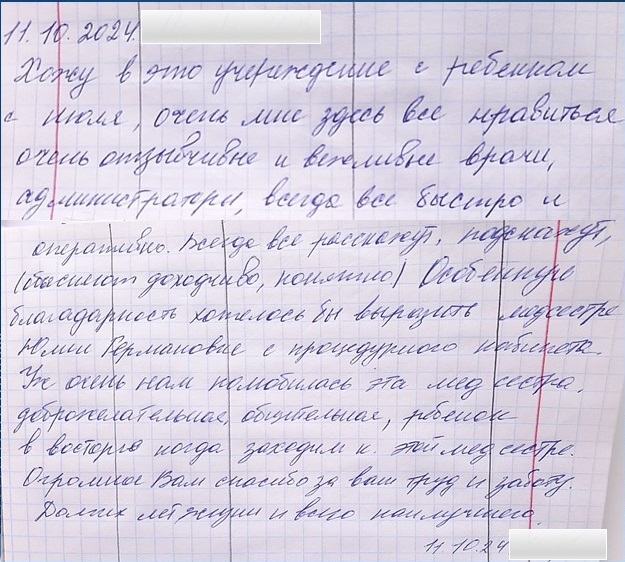 11.10.2024.
Хожу в это учереждение с ребенком
с июля, очень мне здесь все нравиться
очень отзывчивые и вежливые врачи,
администраторы, всегда все быстро и
оперативно. Всегда все расскажут, подскажут,
(объяснят доходчиво, понятно) Особенную
благодарность хотелось бы выразить медсестре
Юлии Германовне с процедурного кабинета.
Уж очень нам полюбилась эта медсестра,
доброжелательная, общительная, ребенок
в восторге когда заходим к этой медсестре.
Огромное Вам спасибо за ваш труд и заботу.
Долгих лет жизни и всего наилучшего.
11.10.24